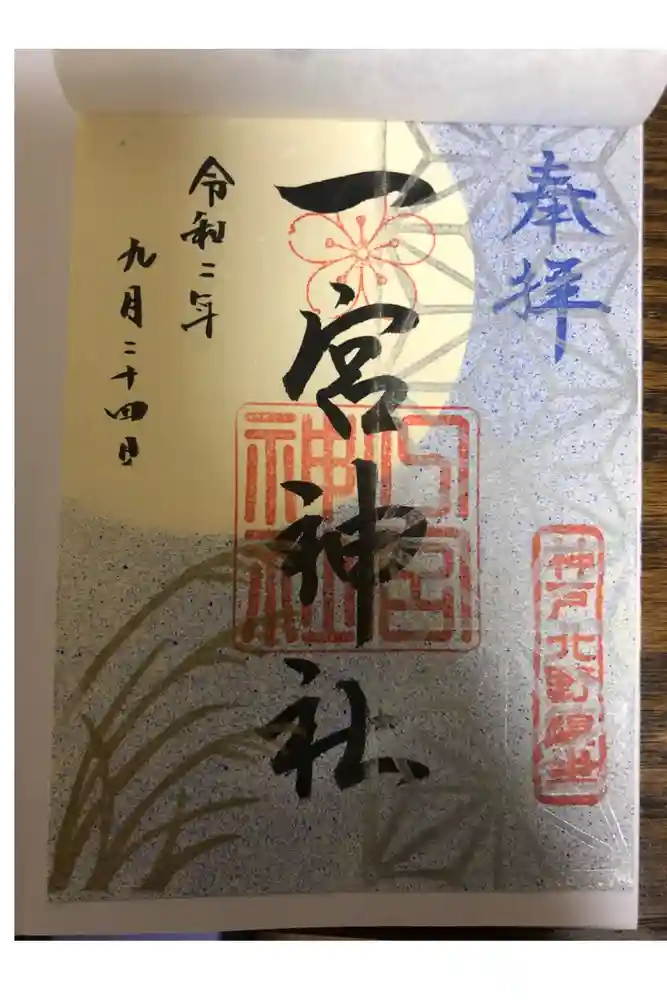 奉拝
神戸北野鎮坐
一宮神社
一宮
神社
令和二年
九月二十四日